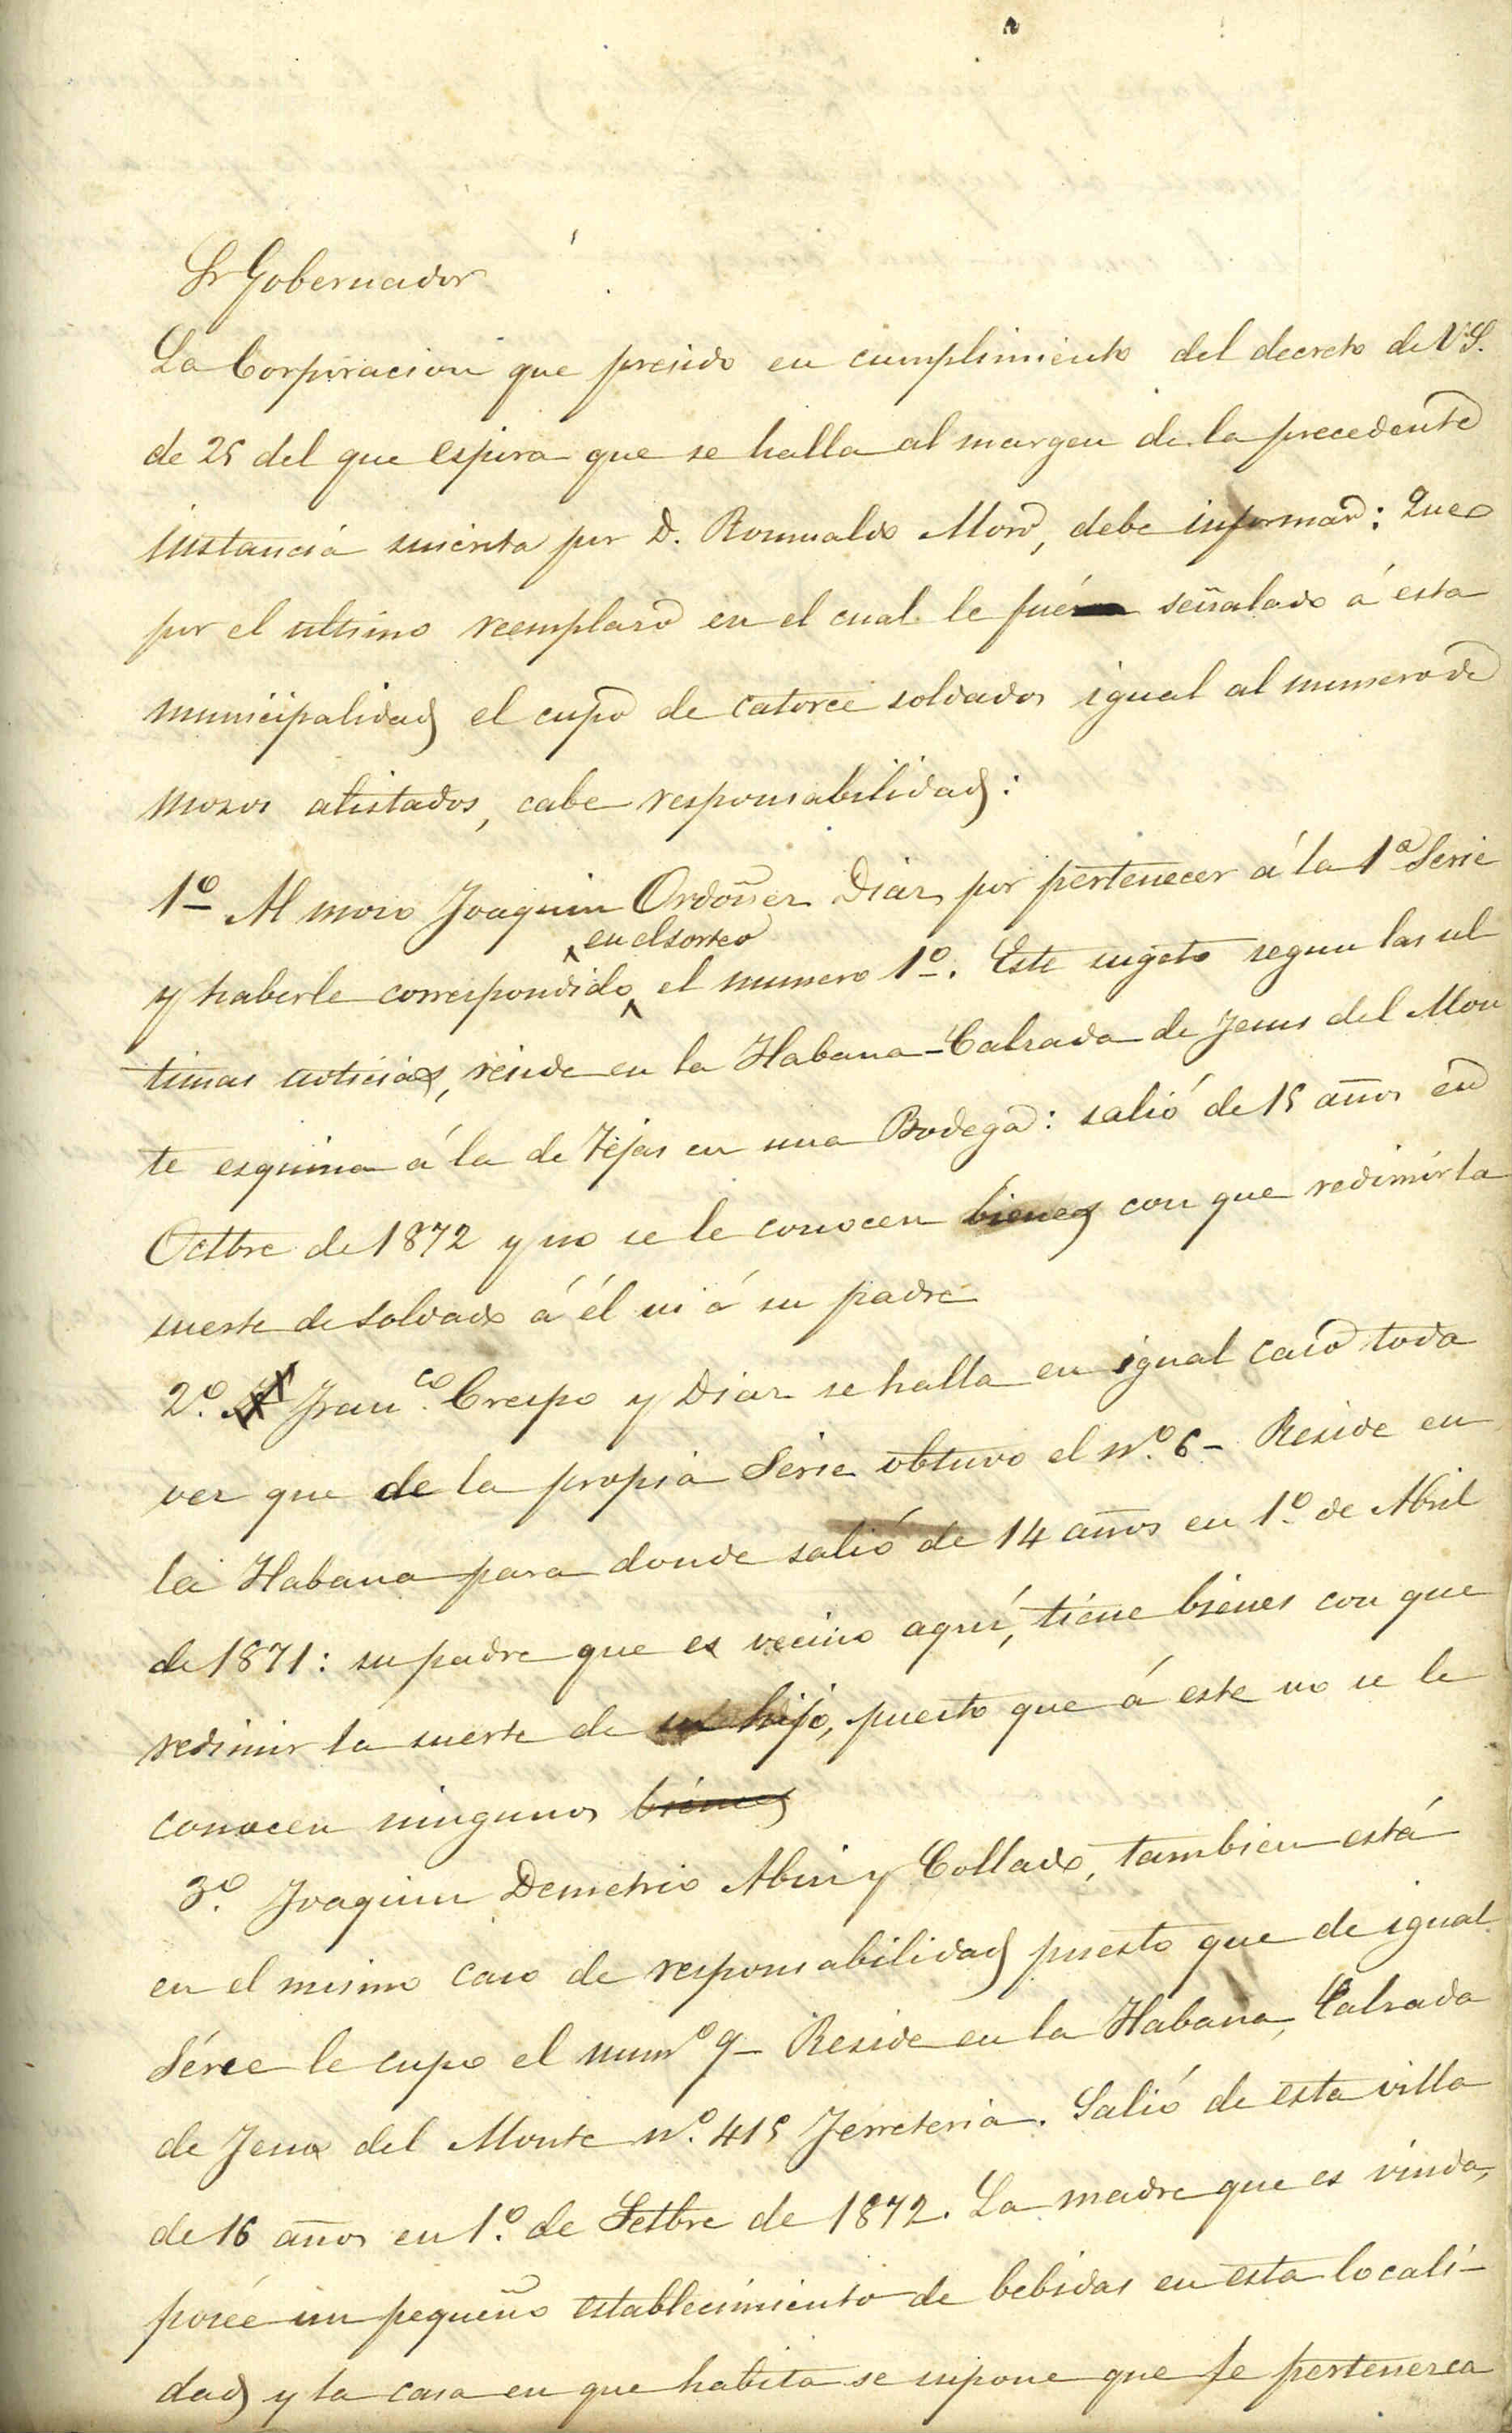 Sr Gobernador
La Corporacion que presido en cumplimiento del decreto de V.S.
de 25 del que espira que se halla al margen de la precedente
instancia suscrita por D. Romualdo Moro, debe informar: Que
por el ultimo reemplazo en el cual le fué señalado á esta
municipalidad el cupo de catorce soldados igual al numero de
mozos alistados, cabe responsabilidad:
1º Al mozo Joaquin Ordoñez Diaz por pertenecer á la 1ª Serie
en el sorteo
y haberle correspondido el numero 1º. Este sugeto segun las ul
timas noticias, reside en la Habana - Calzada de Jesus del Mon
te esquina á la de Tejas en una Bodega: salió de 15 años en
Octbre de 1872 y no se le conocen bienes con que redimir la
suerte de soldado á él ni á su padre
2º. Franco. Crespo y Diaz se halla en igual caso toda
vez que de la propia Serie obtuvo el nº. 6 - Reside en
la Habana para donde salió de 14 años en 1º. de Abril
de 1871: su padre que es vecino aquí, tiene bienes con que
redimir la suerte de su hijo, puesto que á este no se le
conocen ningunos bienes
3º. Joaquin Demetrio Abin y Collado, tambien está
en el mismo caso de responsabilidad puesto que de igual
Série le cupo el numº 9 - Reside en la Habana, Calzada
de Jesus del Monte nº. 415 Ferreteria. Salió de esta villa
de 16 años en 1º. de Setbre de 1872. La madre que es viuda,
posée un pequeño establecimiento de bebidas en esta locali-
dad y la casa en que habita se supone que le pertenezca